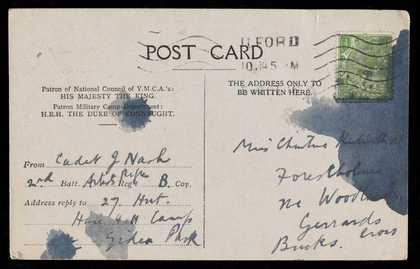 POST CARD
ILFORD
10.45 AM
Patron of National Council of Y.M.C.A.'s:
HIS MAJESTY THE KING.
Patron Military Camp Department:
H.R.H. THE DUKE OF CONNAUGHT.
THE ADDRESS ONLY TO
BE WRITTEN HERE.
From Cadet J Nash
2nd Batt. Artists Rifles Regt B. Coy.
Address reply to 27 Hut.
Hare Hall Camp
Gidea Park
Miss
Forest Holme
Nr
Gerrards
Cross
Bucks.